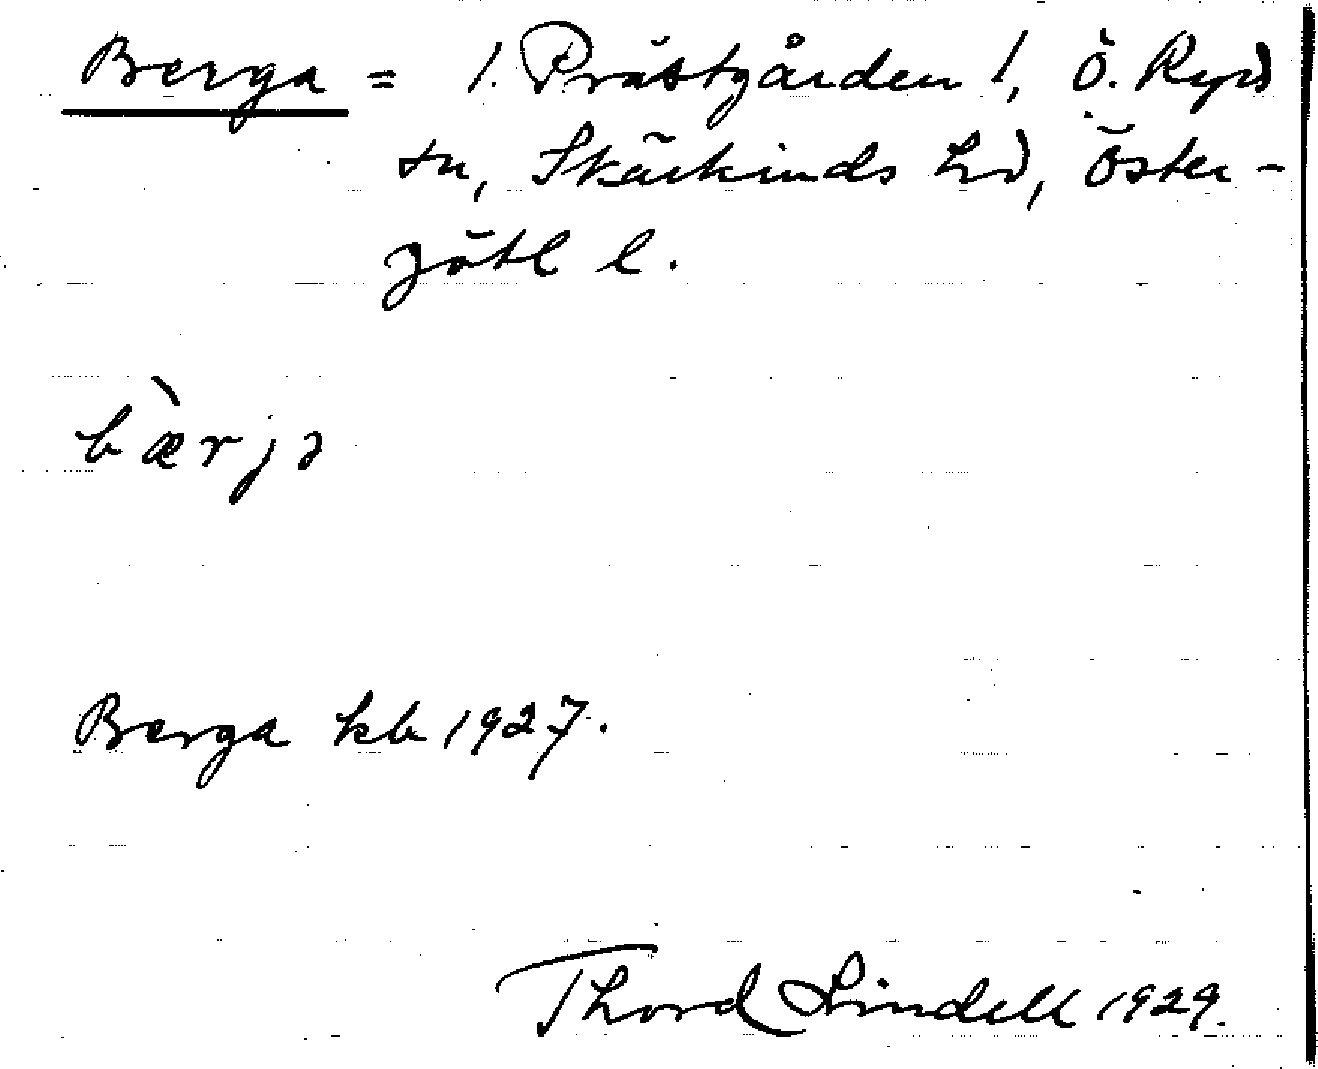 Berga = 1. Prästgården 1, Ö. Ryd
sn, Skärkinds hd, Öster-
götl l.
bæ̀rjə
Berga kb 1927.
Thord Lindell 1929.